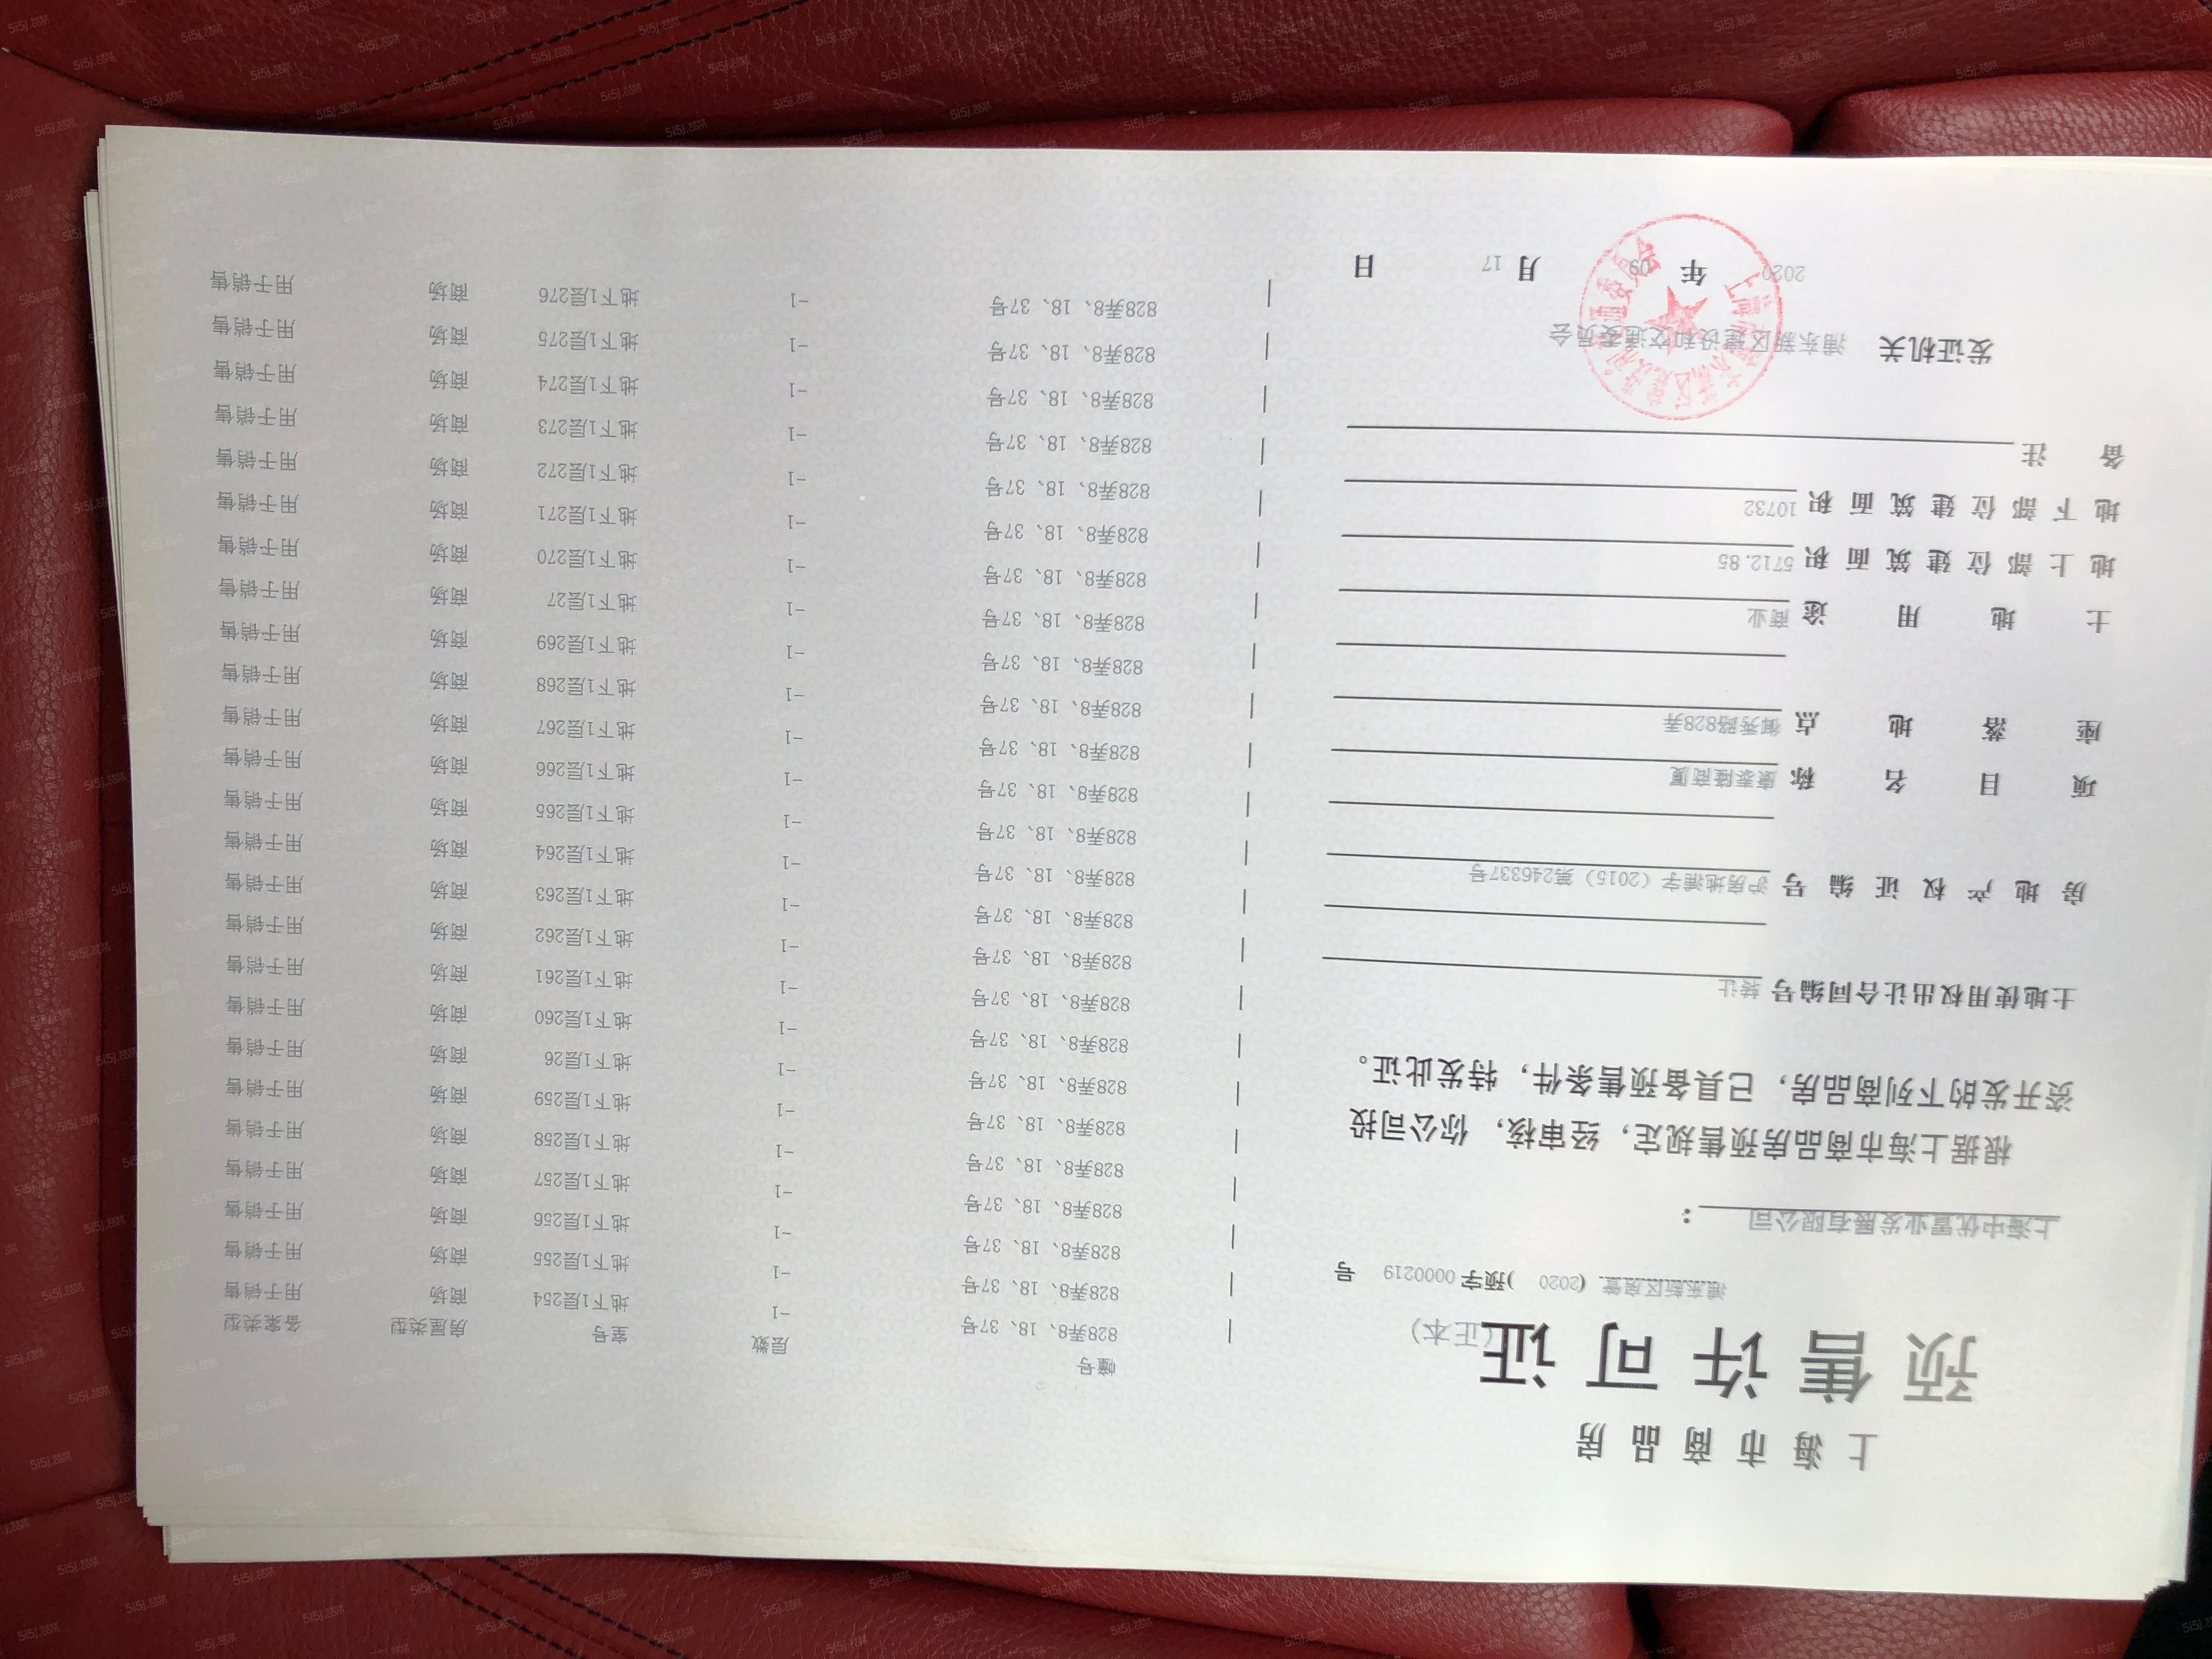 上海市商品房
预售许可证
(正本)
浦东新区房管 (2020 )预字 0000219 号
上海中优置业发展有限公司 :
根据上海市商品房预售规定，经审核，你公司投
资开发的下列商品房，已具备预售条件，特发此证。
土地使用权出让合同编号 转让
房地产权证编号 沪房地浦字（2015）第246337号
项目名称 康泰隆商厦
座落地点 御秀路828弄
土地用途 商业
地上部位建筑面积 5712.85
地下部位建筑面积 10732
备注
发证机关 浦东新区建设和交通委员会
2020 年 09 月 17 日
幢号 层数 室号 房屋类型 备案类型
828弄8、18、37号 -1 地下1层254 商场 用于销售
828弄8、18、37号 -1 地下1层255 商场 用于销售
828弄8、18、37号 -1 地下1层256 商场 用于销售
828弄8、18、37号 -1 地下1层257 商场 用于销售
828弄8、18、37号 -1 地下1层258 商场 用于销售
828弄8、18、37号 -1 地下1层259 商场 用于销售
828弄8、18、37号 -1 地下1层26 商场 用于销售
828弄8、18、37号 -1 地下1层260 商场 用于销售
828弄8、18、37号 -1 地下1层261 商场 用于销售
828弄8、18、37号 -1 地下1层262 商场 用于销售
828弄8、18、37号 -1 地下1层263 商场 用于销售
828弄8、18、37号 -1 地下1层264 商场 用于销售
828弄8、18、37号 -1 地下1层265 商场 用于销售
828弄8、18、37号 -1 地下1层266 商场 用于销售
828弄8、18、37号 -1 地下1层267 商场 用于销售
828弄8、18、37号 -1 地下1层268 商场 用于销售
828弄8、18、37号 -1 地下1层269 商场 用于销售
828弄8、18、37号 -1 地下1层27 商场 用于销售
828弄8、18、37号 -1 地下1层270 商场 用于销售
828弄8、18、37号 -1 地下1层271 商场 用于销售
828弄8、18、37号 -1 地下1层272 商场 用于销售
828弄8、18、37号 -1 地下1层273 商场 用于销售
828弄8、18、37号 -1 地下1层274 商场 用于销售
828弄8、18、37号 -1 地下1层275 商场 用于销售
828弄8、18、37号 -1 地下1层276 商场 用于销售